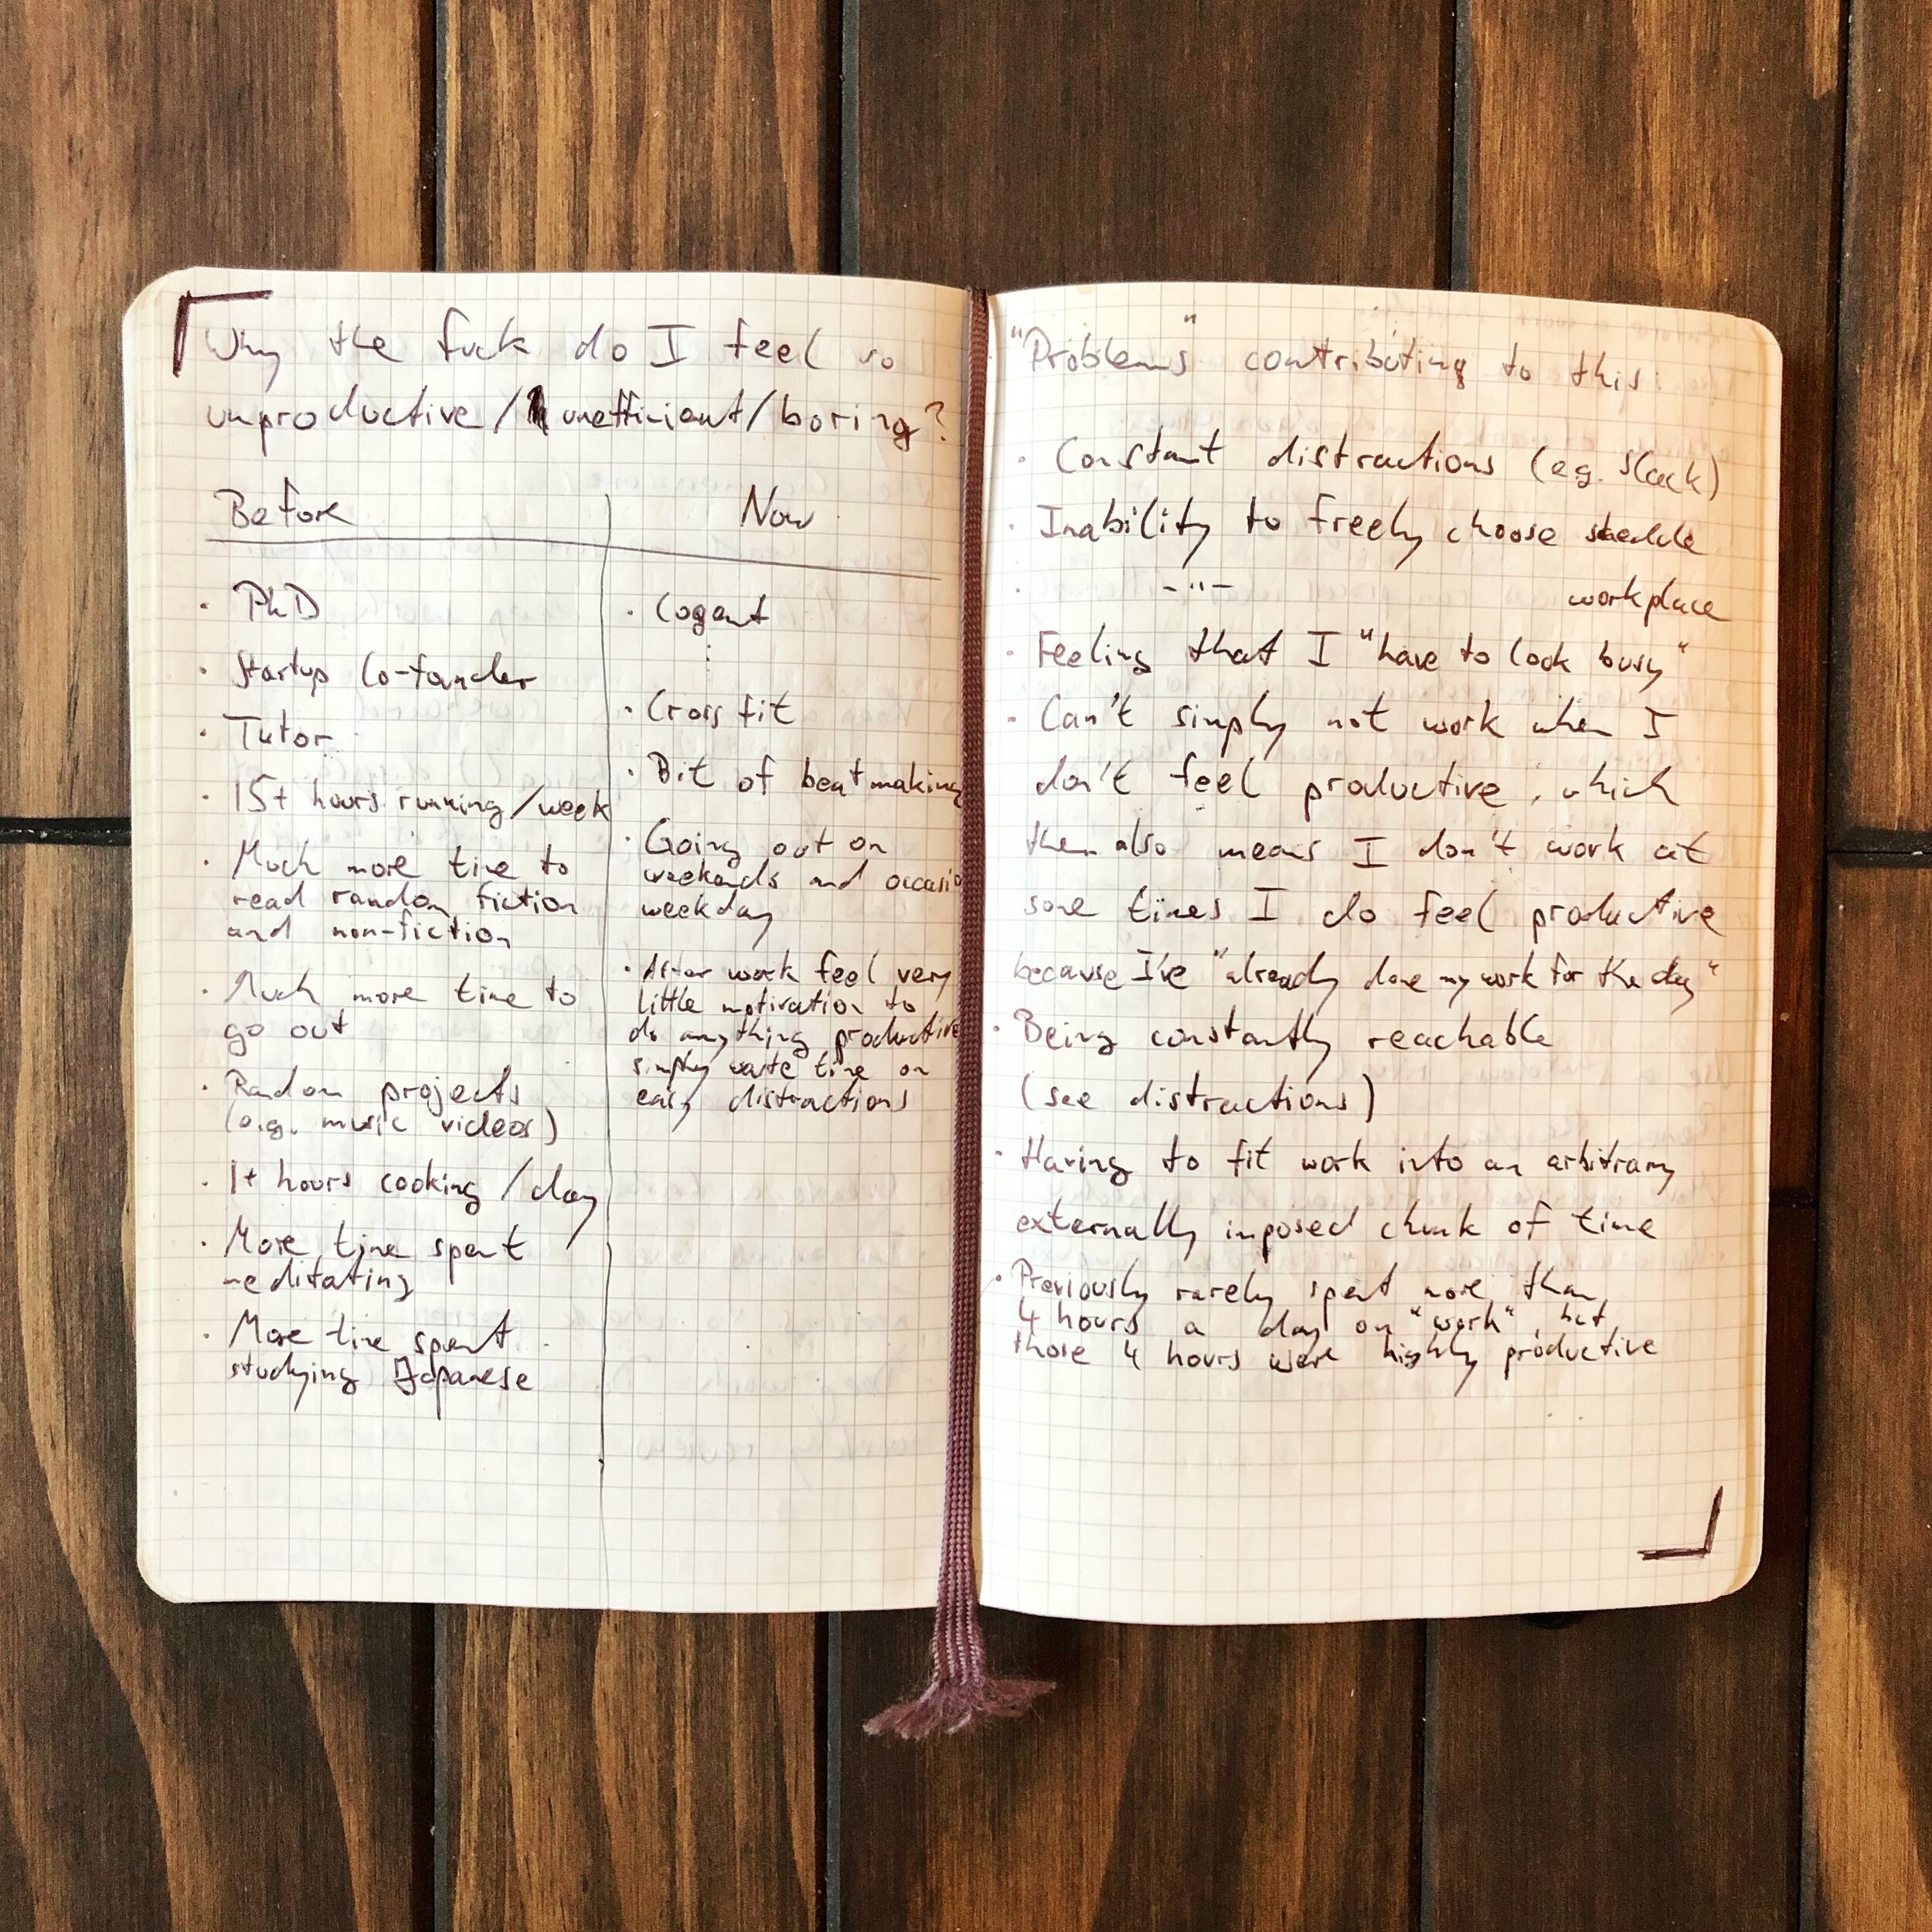 Why the fuck do I feel so
unproductive / unefficient / boring?
Before
· PhD
· Startup Co-founder
· Tutor
· 15+ hours running / week
· Much more time to
read random fiction
and non-fiction
· Much more time to
go out
· Random projects
(e.g. music videos)
· 1+ hours cooking / day
· More time spent
meditating
· More time spent
studying Japanese
Now
· Cogent
⋮
· Crossfit
· Bit of beatmaking
· Going out on
weekends and occasio
weekday
· After work feel very
little motivation to
do anything productive
simply waste time on
easy distractions
"Problems" contributing to this:
· Constant distractions (e.g. Slack)
· Inability to freely choose schedule
· -"- workplace
· Feeling that I "have to look busy"
· Can't simply not work when I
don't feel productive, which
then also means I don't work at
some times I do feel productive
because I've "already done my work for the day"
· Being constantly reachable
(see distractions)
· Having to fit work into an arbitrary
externally imposed chunk of time
· Previously rarely spent more than
4 hours a day on "work" but
those 4 hours were highly productive